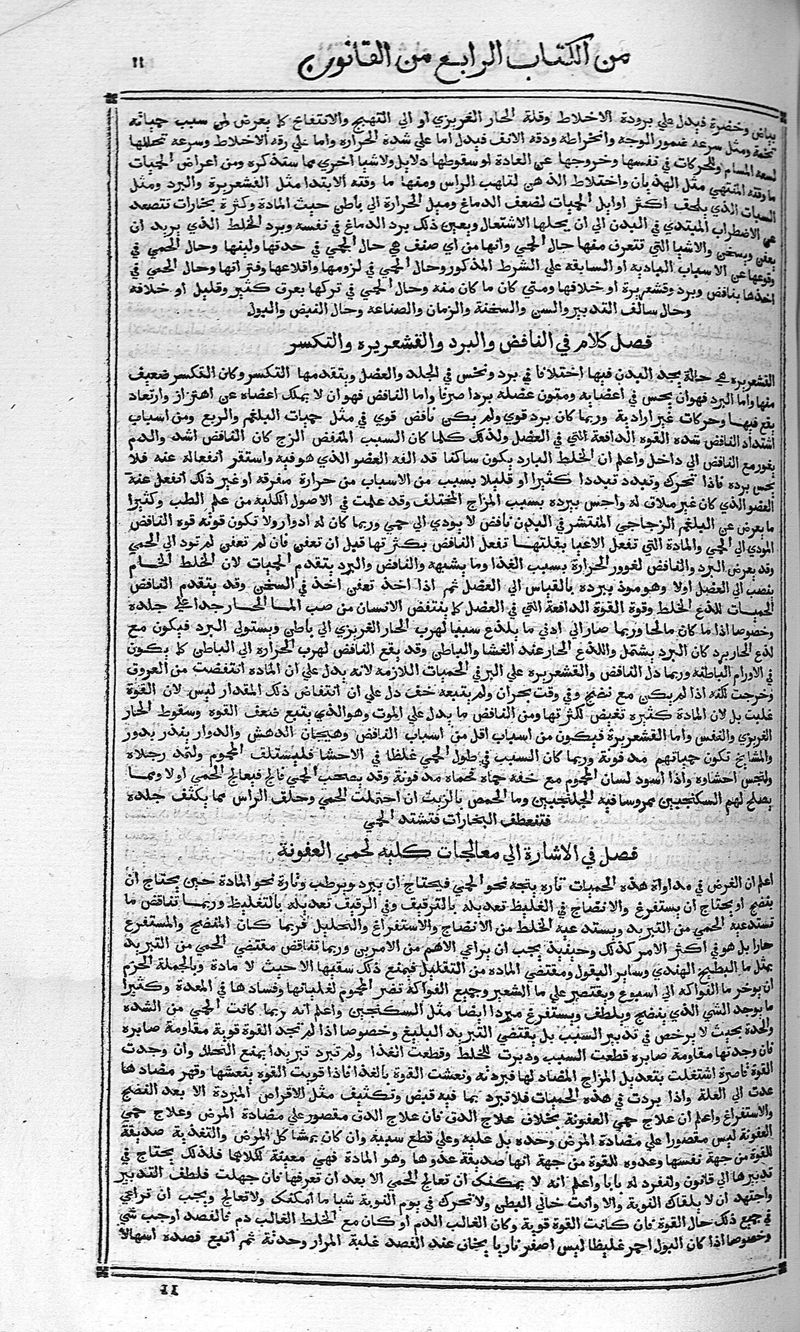 من الكتاب الرابع من القانون
١١
بياض وخضرة فيدل علي برودة الاخلاط وقلة الحار الغريزي او الي التهيج والانتفاخ كما يعرض لمن سبب حمياته
تخمة ومثل سرعه ضمور الوجه وانخراطه ودقه الانف فيدل اما علي شده الحراره واما علي رقه الاخلاط وسرعه تحللها
لسعه المسام والحركات في نفسها وخروجها عن العادة او سقوطها دلايل ولاشيا اخري مما سنذكره ومن اعراض الحميات
ما وقته المنتهي مثل الهذيان واختلاط الذهن لتلهب الراس ومنها ما وقته الابتدا مثل القشعريرة والبرد ومثل
السبات الذي يلحف اكثر اوايل الحميات لضعف الدماغ وميل الحرارة الي باطن حيث المادة وكثرة بخارات تتصعد
عن الاضطراب المبتدي في البدن الي ان يحللها الاشتعال ويعين ذلك برد الدماغ في نفسه وبرد الخلط الذي يريد ان
يعفن ويسخن والاشيا التي تتعرف منها حال الحمي وانها من اي صنف هي حال الحمي في حدتها ولينها وحال الحمي في
وقوعها عن الاسباب البادية او السابقه علي الشرط المذكور وحال الحمي في لزومها واقلاعها وفتراتها وحال الحمي في
اخذها بنافض وبرد وقشعريرة او خلافها ومتي كان ما كان منه وحال الحمي في تركها بعرف كثير وقليل او خلافه
وحال سالف التدبير والسن والسخنة والزمان والصناعه وحال النبض والبول
فصل كلام في النافض والبرد والقشعريره والتكسر
القشعريره هي حالة يجد البدن فيها اختلافا في برد ونخس في الجلد والعضل ويتقدمها التكسر وكان التكسر ضعيف
منها واما البرد فهو ان يحس في اعضايه ومتون عضله بردا صرفا واما النافض فهو ان لا يملك اعضاه عن اهتزاز وارتعاد
يقع فيها وحركات غير ارادية وربما كان برد قوي ولم يكن نافض قوي في مثل حميات البلغم والربع ومن اسباب
اشتداد النافض شده القوه الدافعة التي في العضل ولذلك كلما كان السبب المنفض الزج كان النافض اشد والدم
يغور مع النافض الي داخل واعلم ان الخلط البارد يكون ساكنا قد الفه العضو الذي هو فيه واستقر انفعاله عنه فلا
يحس برده فاذا تحرك وتبدد تبددا كثيرا او قليلا بسبب من الاسباب من حرارة مفرقه او غير ذلك انفعل عنه
العضو الذي كان غير ملاق له واحس ببرده بسبب المزاج المختلف وقد علمت في الاصول الكلية من علم الطب وكثيرا
ما يعرض عن البلغم الزجاجي المنتشر في البدن نافض لا يودي الي حمي وربما كان له ادوار ولا تكون قوته قوه النافض
المودي الي الحمي والمادة التي تفعل الاعيا بقلتها تفعل النافض بكثرتها قبل ان تعفن فان لم تعفن لم تود الي الحمي
وقد يعرض البرد والنافض لغوور الحرارة بسبب الغذا وما يشبهه والنافض والبرد يتقدم الحميات لان الخلط الخام
ينصب الي العضل اولا وهو موذ ببرده بالقياس الي العضل ثم اذا اخذ تعفن اخذ في السخن وقد يتقدم النافض
الحميات للذع الخلط وقوة القوة الدافعة التي في العضل كما ينتفض الانسان من صب الما الحار جدا علي جلده
وخصوصا اذا ما كان مالحا وربما صار الي ادني ما يلذع سببا لهرب الحار الغريزي الي باطن ويستولي البرد فيكون مع
لذع الحار برد كان البرد يشتمل واللذع الحار عند الغشا والباطن وقد يقع النافض لهرب الحراره الي الباطن كما يكون
في الاورام الباطنه وربما دل النافض والقشعريره علي البر في الحميات اللازمه لانه يدل علي ان المادة انتفضت من العروق
وخرجت لكنه اذا لم يكن مع نضج وفي وقت بحران ولم يتبعه خف دل علي ان انتفاض ذلك المقدار ليس لان القوة
غلبت بل لان المادة كثيره تفيض لكثرتها ومن النافض ما يدل علي الموت وهو الذي يتبع ضعف القوه وسقوط الحار
الغريزي والنفس واما القشعريرة فيكون من اسباب اقل من اسباب النافض وهيجان الدهش والدوار ينذر بدور
والمشايخ تكون حمياتهم مدفونة وربما كان السبب في طول الحمي غلظا في الاحشا فليستلف المحموم ولتمد رجلاه
ولتجس احشاوه واذا اسود لسان المحموم مع خفه حماه فحماه مدفونة وقد يصحب الحمي فالج فيعالج الحمي اولا ومما
يصلح لهم السكنجبين ممروسا فيه الجلنجبين وما الحمص بالزيت ان احتملت الحمي وحلف الراس مما يكثف جلده
فتنعطف البخارات فتشتد الحمي
فصل في الاشارة الي معالجات كليه لحمي العفونة
اعلم ان الغرض في مداواة هذه الحميات تاره يتجه نحو الحمي فيحتاج ان يبرد ويرطب وتارة نحو المادة حين يحتاج ان
ينضج او يحتاج ان يستفرغ والانضاج في الغليظ تعديله بالترقيف وفي الرقيف تعديله بالتغليظ وربما تناقض ما
تستدعيه الحمي من التبريد ويستدعيه الخلط من الانضاج والاستفراغ والتحليل فربما كان المنضج والمستفرغ
حارا بل هو في اكثر الامر كذلك وحينيذ يجب ان يراعي الاهم من الامرين وربما تناقض مقتضي الحمي من التبريد
بمثل ما البطيخ الهندي وساير البقول ومقتضي الماده من التقليل فيمنع ذلك سقيها الا حيث لا مادة وبالجملة الحزم
ان يوخر ما الفواكه الي اسبوع ويقتصر علي ما الشعير وجميع الفواكة تضر المحموم لغليانها وفسادها في المعدة وكثيرا
ما يوجد الشي الذي ينضج ويلطف ويستفرغ مبردا ايضا مثل السكنجبين واعلم انه ربما كانت الحمي من الشده
والحدة بحيث لا يرخص في تدبير السبب بل يقتضي التبريد البليغ وخصوصا اذا لم تجد القوة قوية مقاومة صابره
فان وجدتها مقاومة صابره قطعت السبب ودبرت للخلط وقطعت الغذا ولم تبرد تبريدا يمنع التحلل وان وجدت
القوة قاصرة اشتغلت بتعديل المزاج المضاد لها فبردته ونعشت القوة بالغذا فاذا قويت القوه بنعشها وقهر مضادها
عدت الي العلة واذا بردت في هذه الحميات فلا تبرد بما فيه قبض وتكثيف مثل الاقراص المبردة الا بعد النضج
والاستفراغ واعلم ان علاج حمي العفونة بخلاف علاج الدق فان علاج الدق مقصور علي مضادة المرض وعلاج حمي
العفونة ليس مقصورا علي مضادة المرض وحده بل عليه وعلي قطع سببه وان كان بما يشاكل المرض والتغذية صديقة
للقوة من جهة نفسها وعدوه للقوة من جهة انها صديقة عدوها وهو المادة فهي معينة لكلاهما فلذلك يحتاج في
تدبيرها الي قانون ولنفرد له بابا واعلم انه لا يمكنك ان تعالج الحمي الا بعد ان تعرفها فان جهلت فلطف التدبير
واجتهد ان لا يلقاك النوبة والا وانت خالي البطن ولا تحرك في يوم النوبة شيا ما امكنك ولا تعالج ويجب ان تراعي
في جميع ذلك حال القوة فان كانت القوة قوية وكان الغالب الدم او كان مع الخلط الغالب دم فالفصد اوجب شي
وخصوصا اذا كان البول احمر غليظا ليس اصفر ناريا يخاف عند الفصد غلبة المرار وحدته ثم اتبع فصده اسهالا
١١